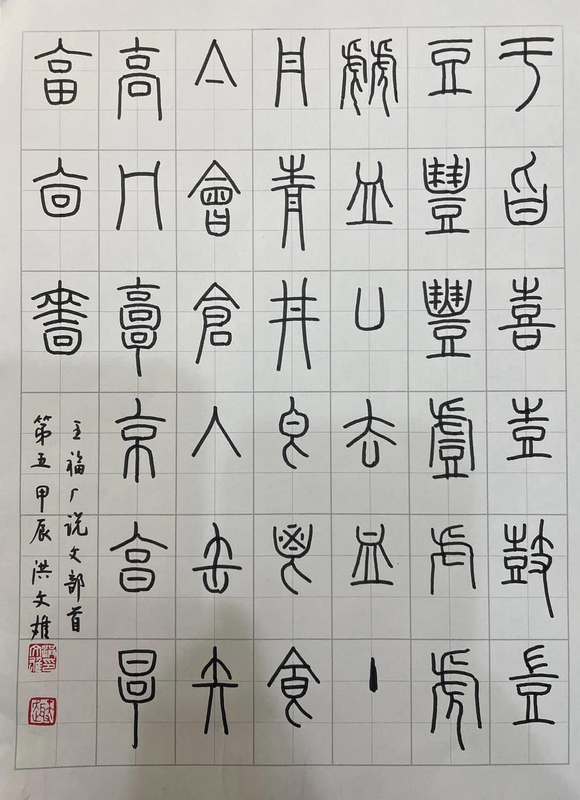 亏旨喜壴鼓豈
豆豊豐䖒虍虎
虤皿凵去血丶
丹青井皀鬯食
亼會倉入缶矢
高冂𩫏京亯㫗
畗㐭嗇
王福厂说文部首
第五甲辰洪文雄